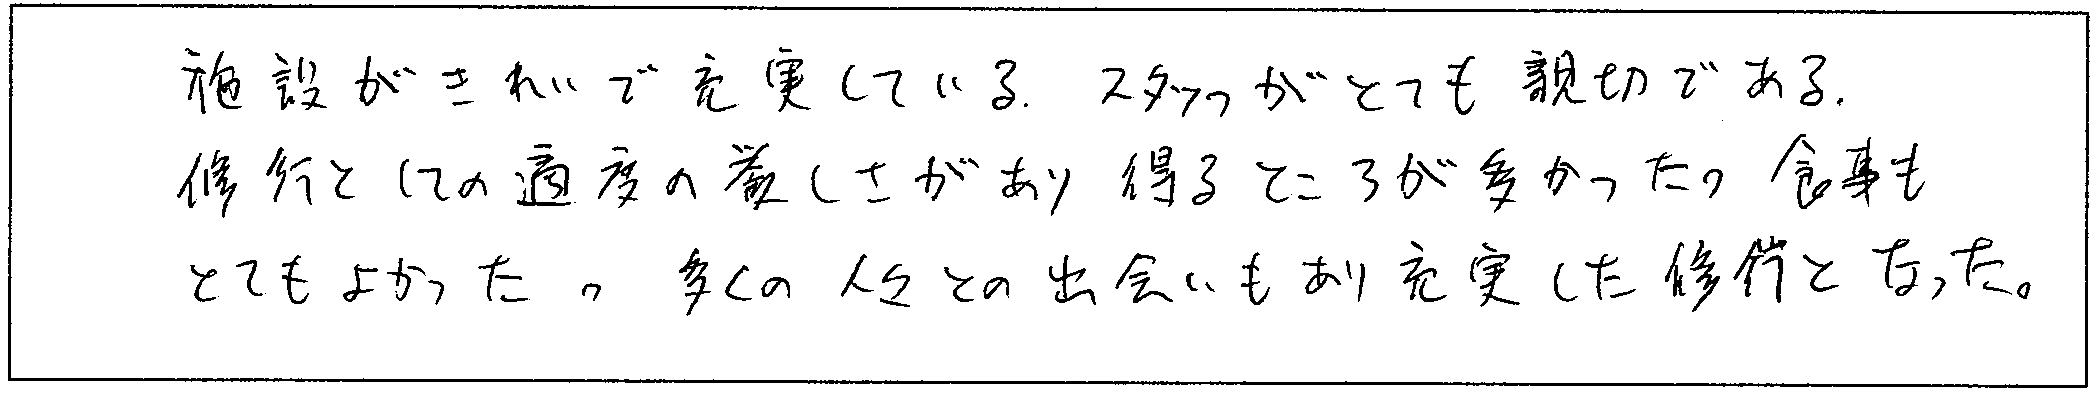 施設がきれいで充実している.スタッフがとても親切である.
修行としての適度の厳しさがあり得るところが多かった。食事も
とてもよかった。多くの人々との出会いもあり充実した修行となった。